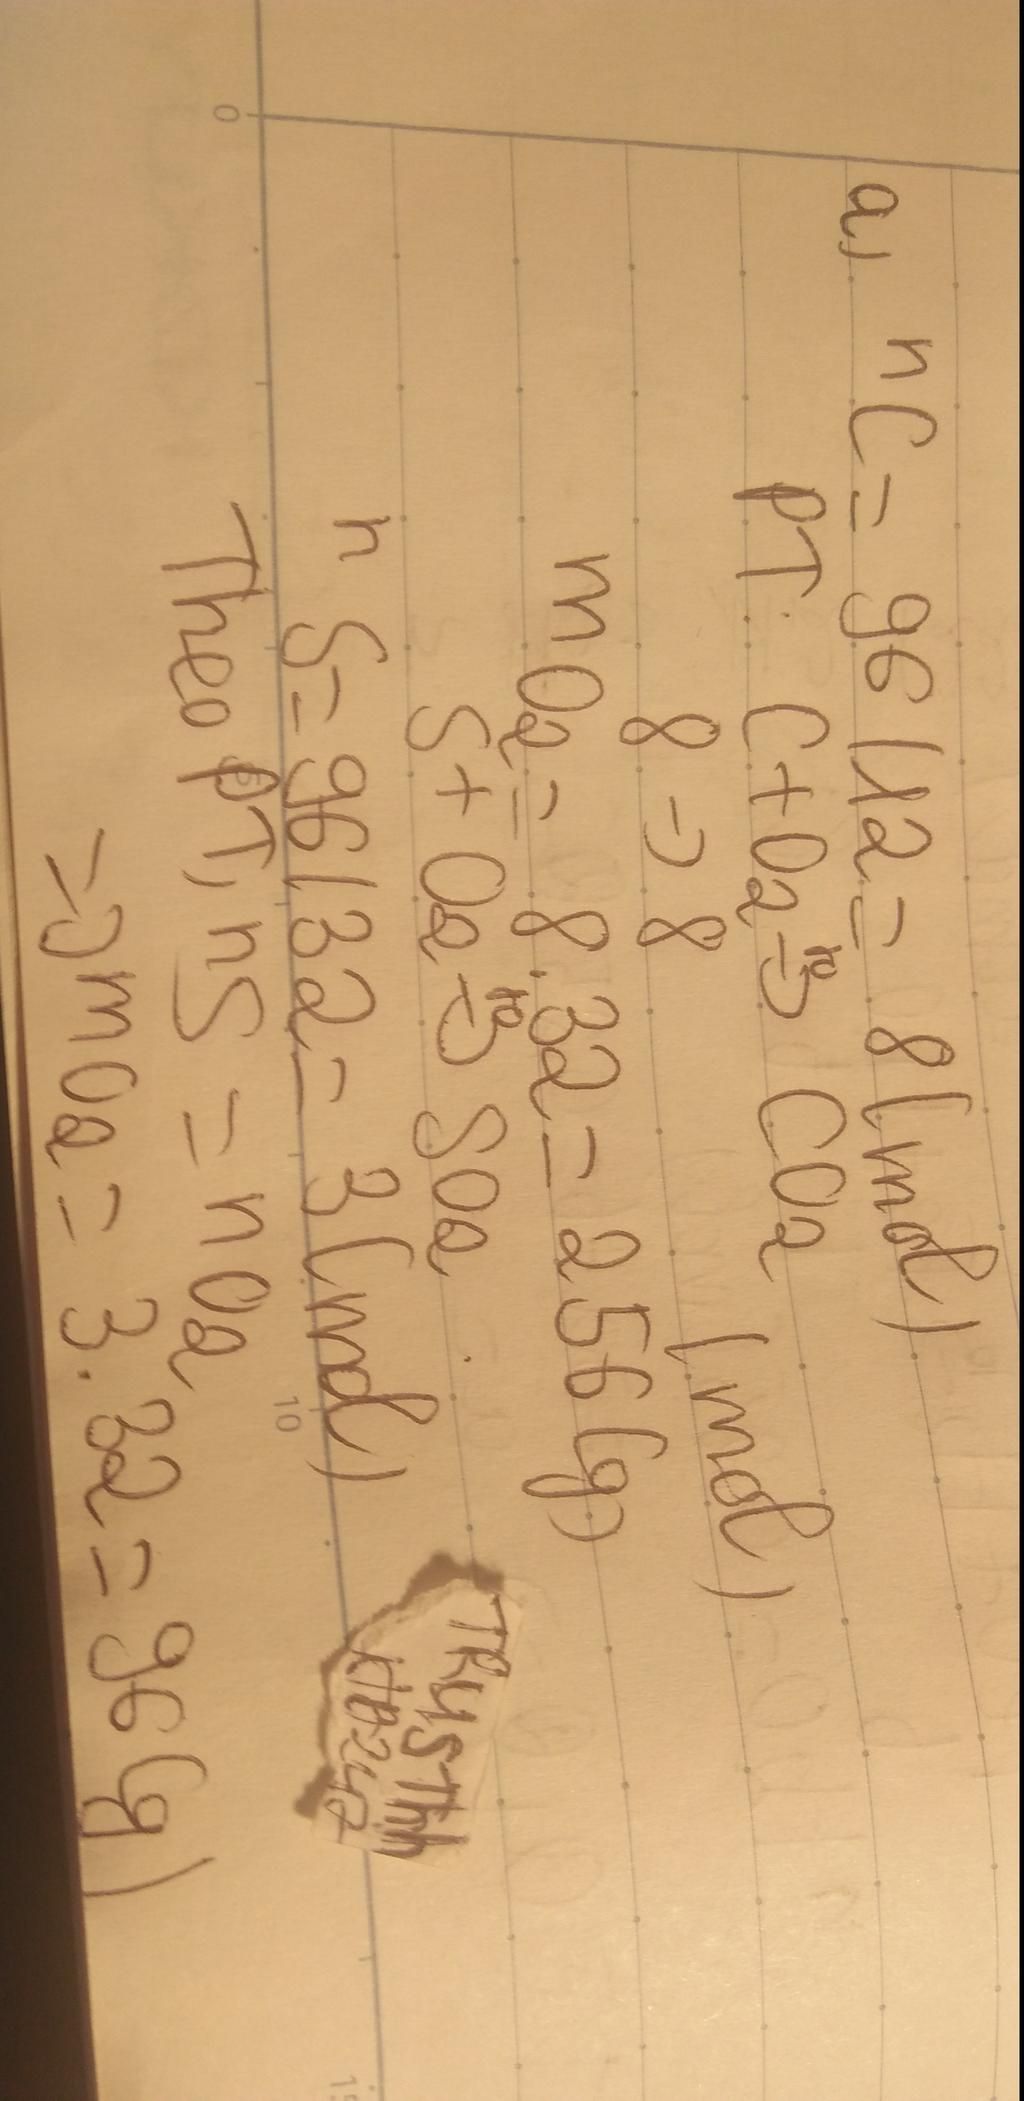 a, nC = 96/12 = 8 (mol)
PT: C + O2 -to-> CO2
8 -> 8 (mol)
mO2 = 8.32 = 256 (g)
S + O2 -to-> SO2
nS = 96/32 = 3 (mol)
Theo PT, nS = nO2
=> mO2 = 3.32 = 96 (g)
0
10
15